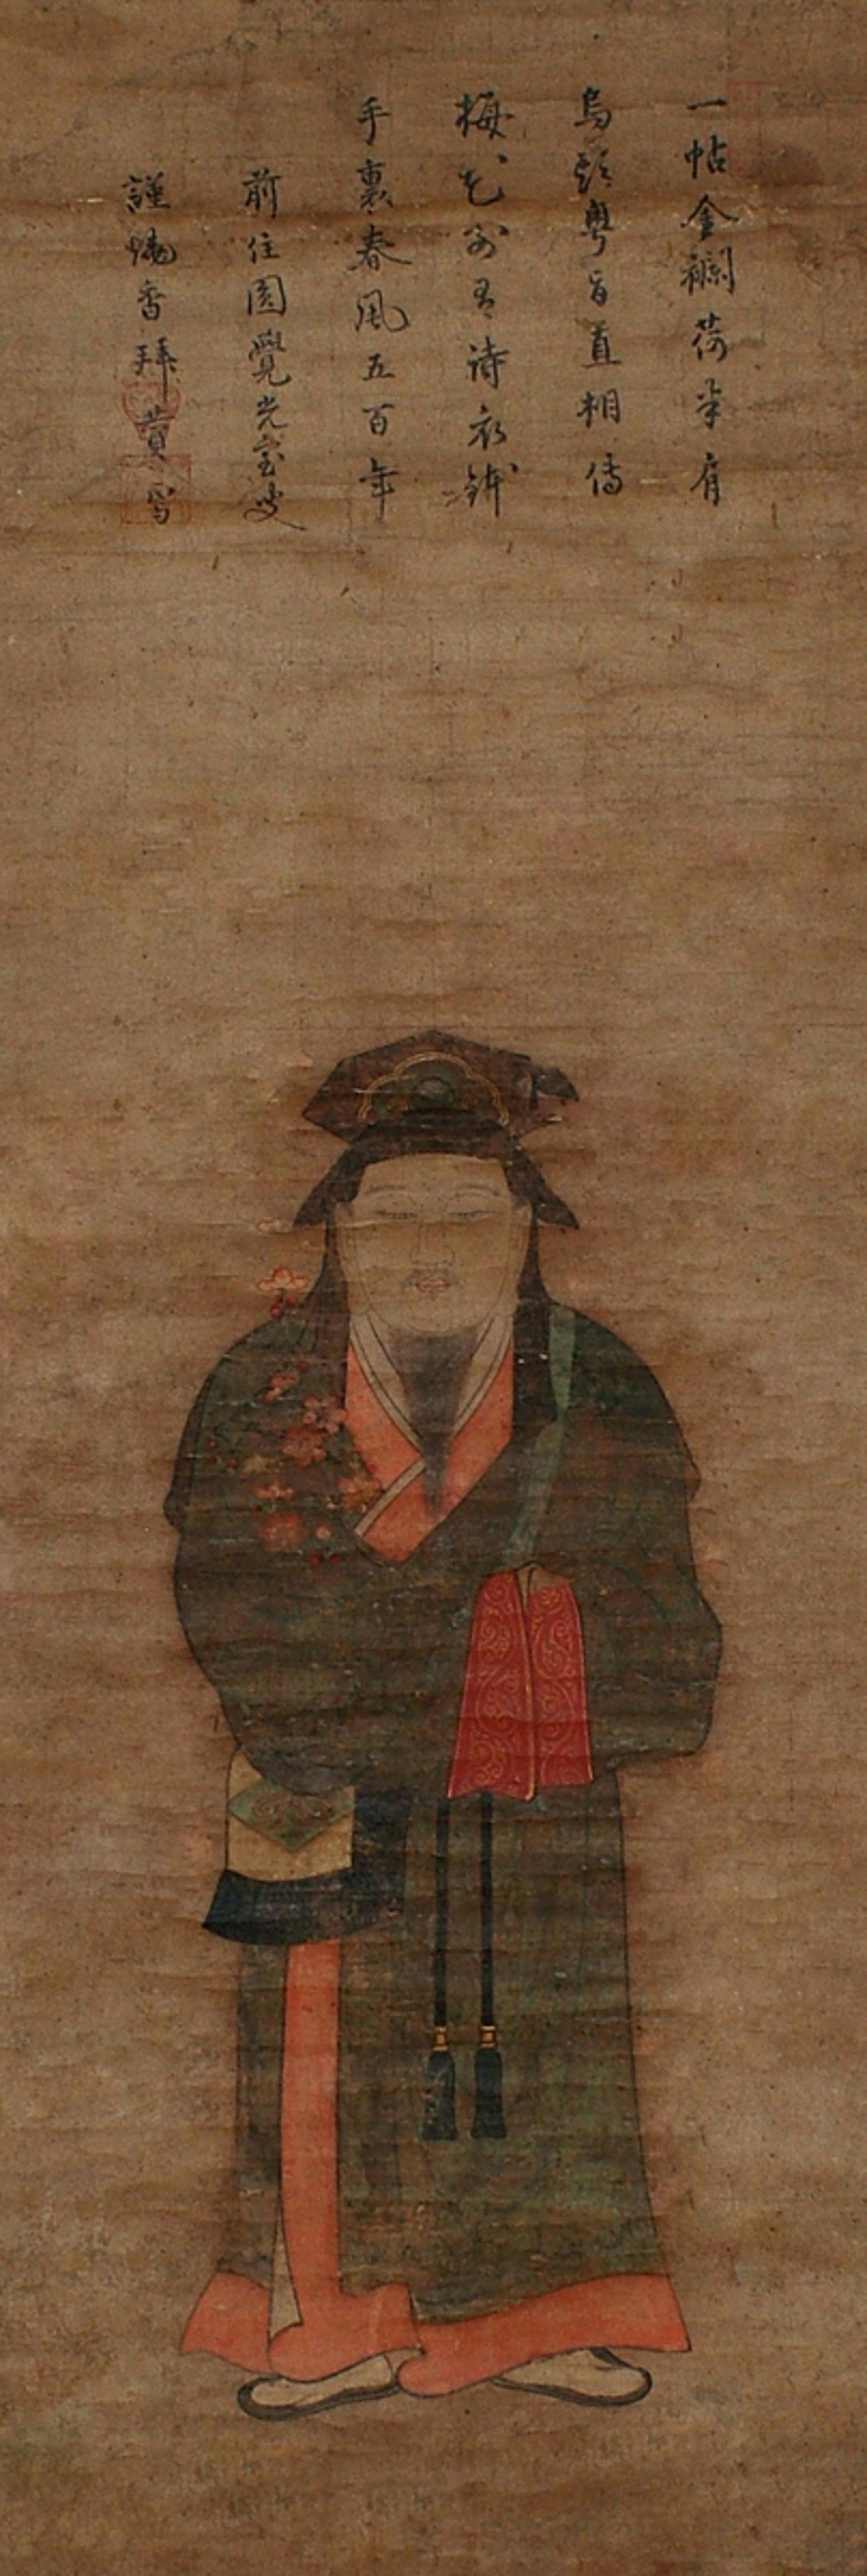 一帖金襴荷半肩
烏頭奥旨直相傳
梅花別有詩衣鉢
手裏春風五百年
前住圓覺光室叟
謹燒香拜賛焉